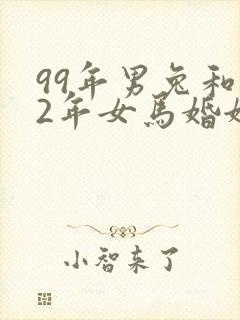 99年男兔和
2年女馬婚姻
小智来了